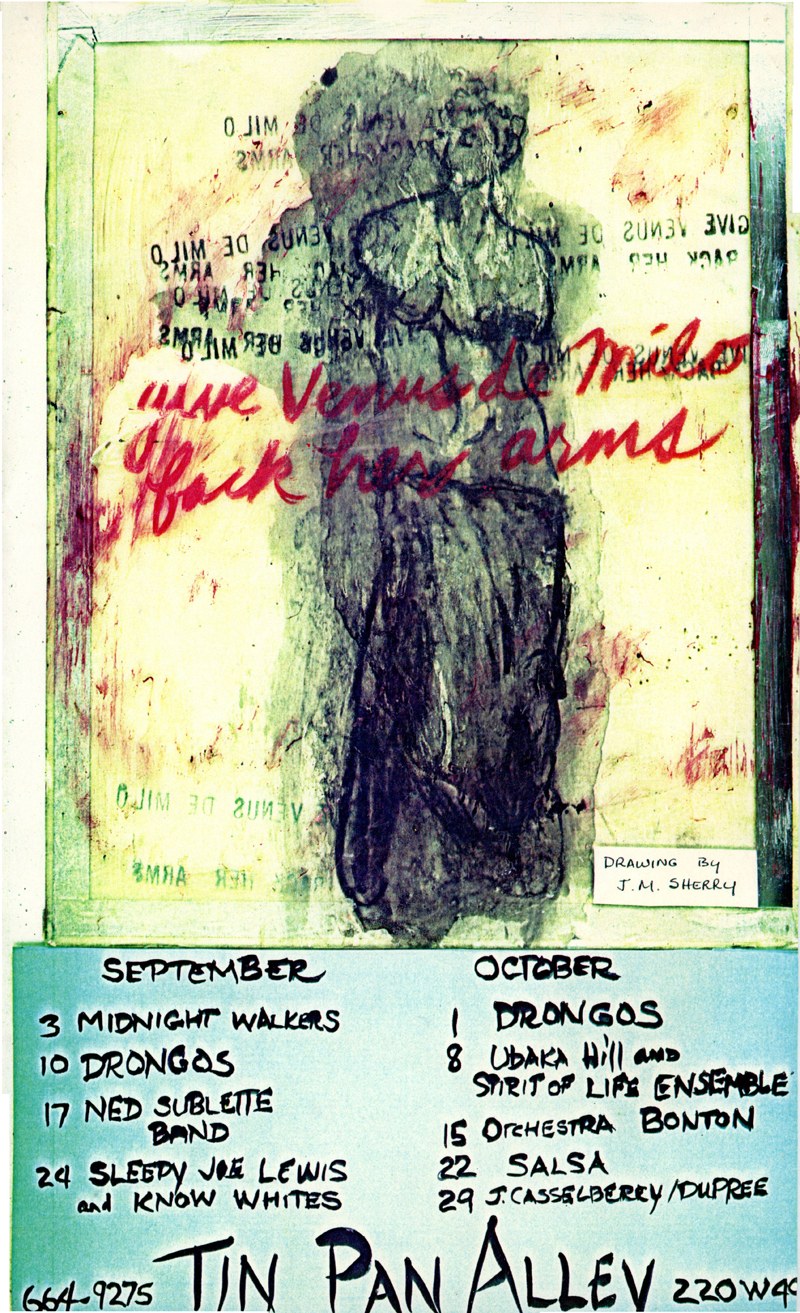 GIVE VENUS DE MILO
BACK HER ARMS
GIVE VENUS DE MILO
BACK HER ARMS
VENUS DE MILO
BACK HER ARMS
VENUS DE MILO
HER ARMS
give Venus de Milo
back her arms
VENUS DE MILO
BACK HER ARMS
DRAWING BY
J.M. SHERRY
SEPTEMBER
3 MIDNIGHT WALKERS
10 DRONGOS
17 NED SUBLETTE
BAND
24 SLEEPY JOE LEWIS
and KNOW WHITES
OCTOBER
1 DRONGOS
8 UBAKA Hill and
SPIRIT OF LIFE ENSEMBLE
15 ORCHESTRA BONTON
22 SALSA
29 J. CASSELBERRY/DUPREE
664-9275 TIN PAN ALLEY 220 W 49